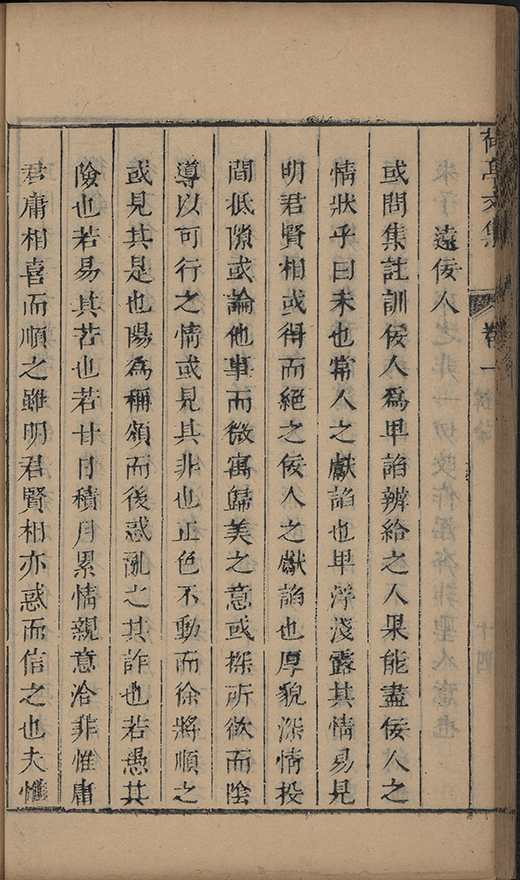 荷亭文集 卷一
遠佞人
或問集註訓佞人爲卑諂辨給之人果能盡佞人之
情狀乎曰未也常人之獻諂也卑浮淺露其情易見
明君賢相或得而絕之佞人之獻諂也厚貌深情投
間低隙或論他事而微寓歸美之意或探所欲而陰
導以可行之情或見其非也正色不動而徐將順之
或見其是也陽爲稱頌而後惑亂之其詐也若愚其
險也若易其苦也若甘日積月累情親意洽非惟庸
君庸相喜而順之雖明君賢相亦惑而信之也夫惟